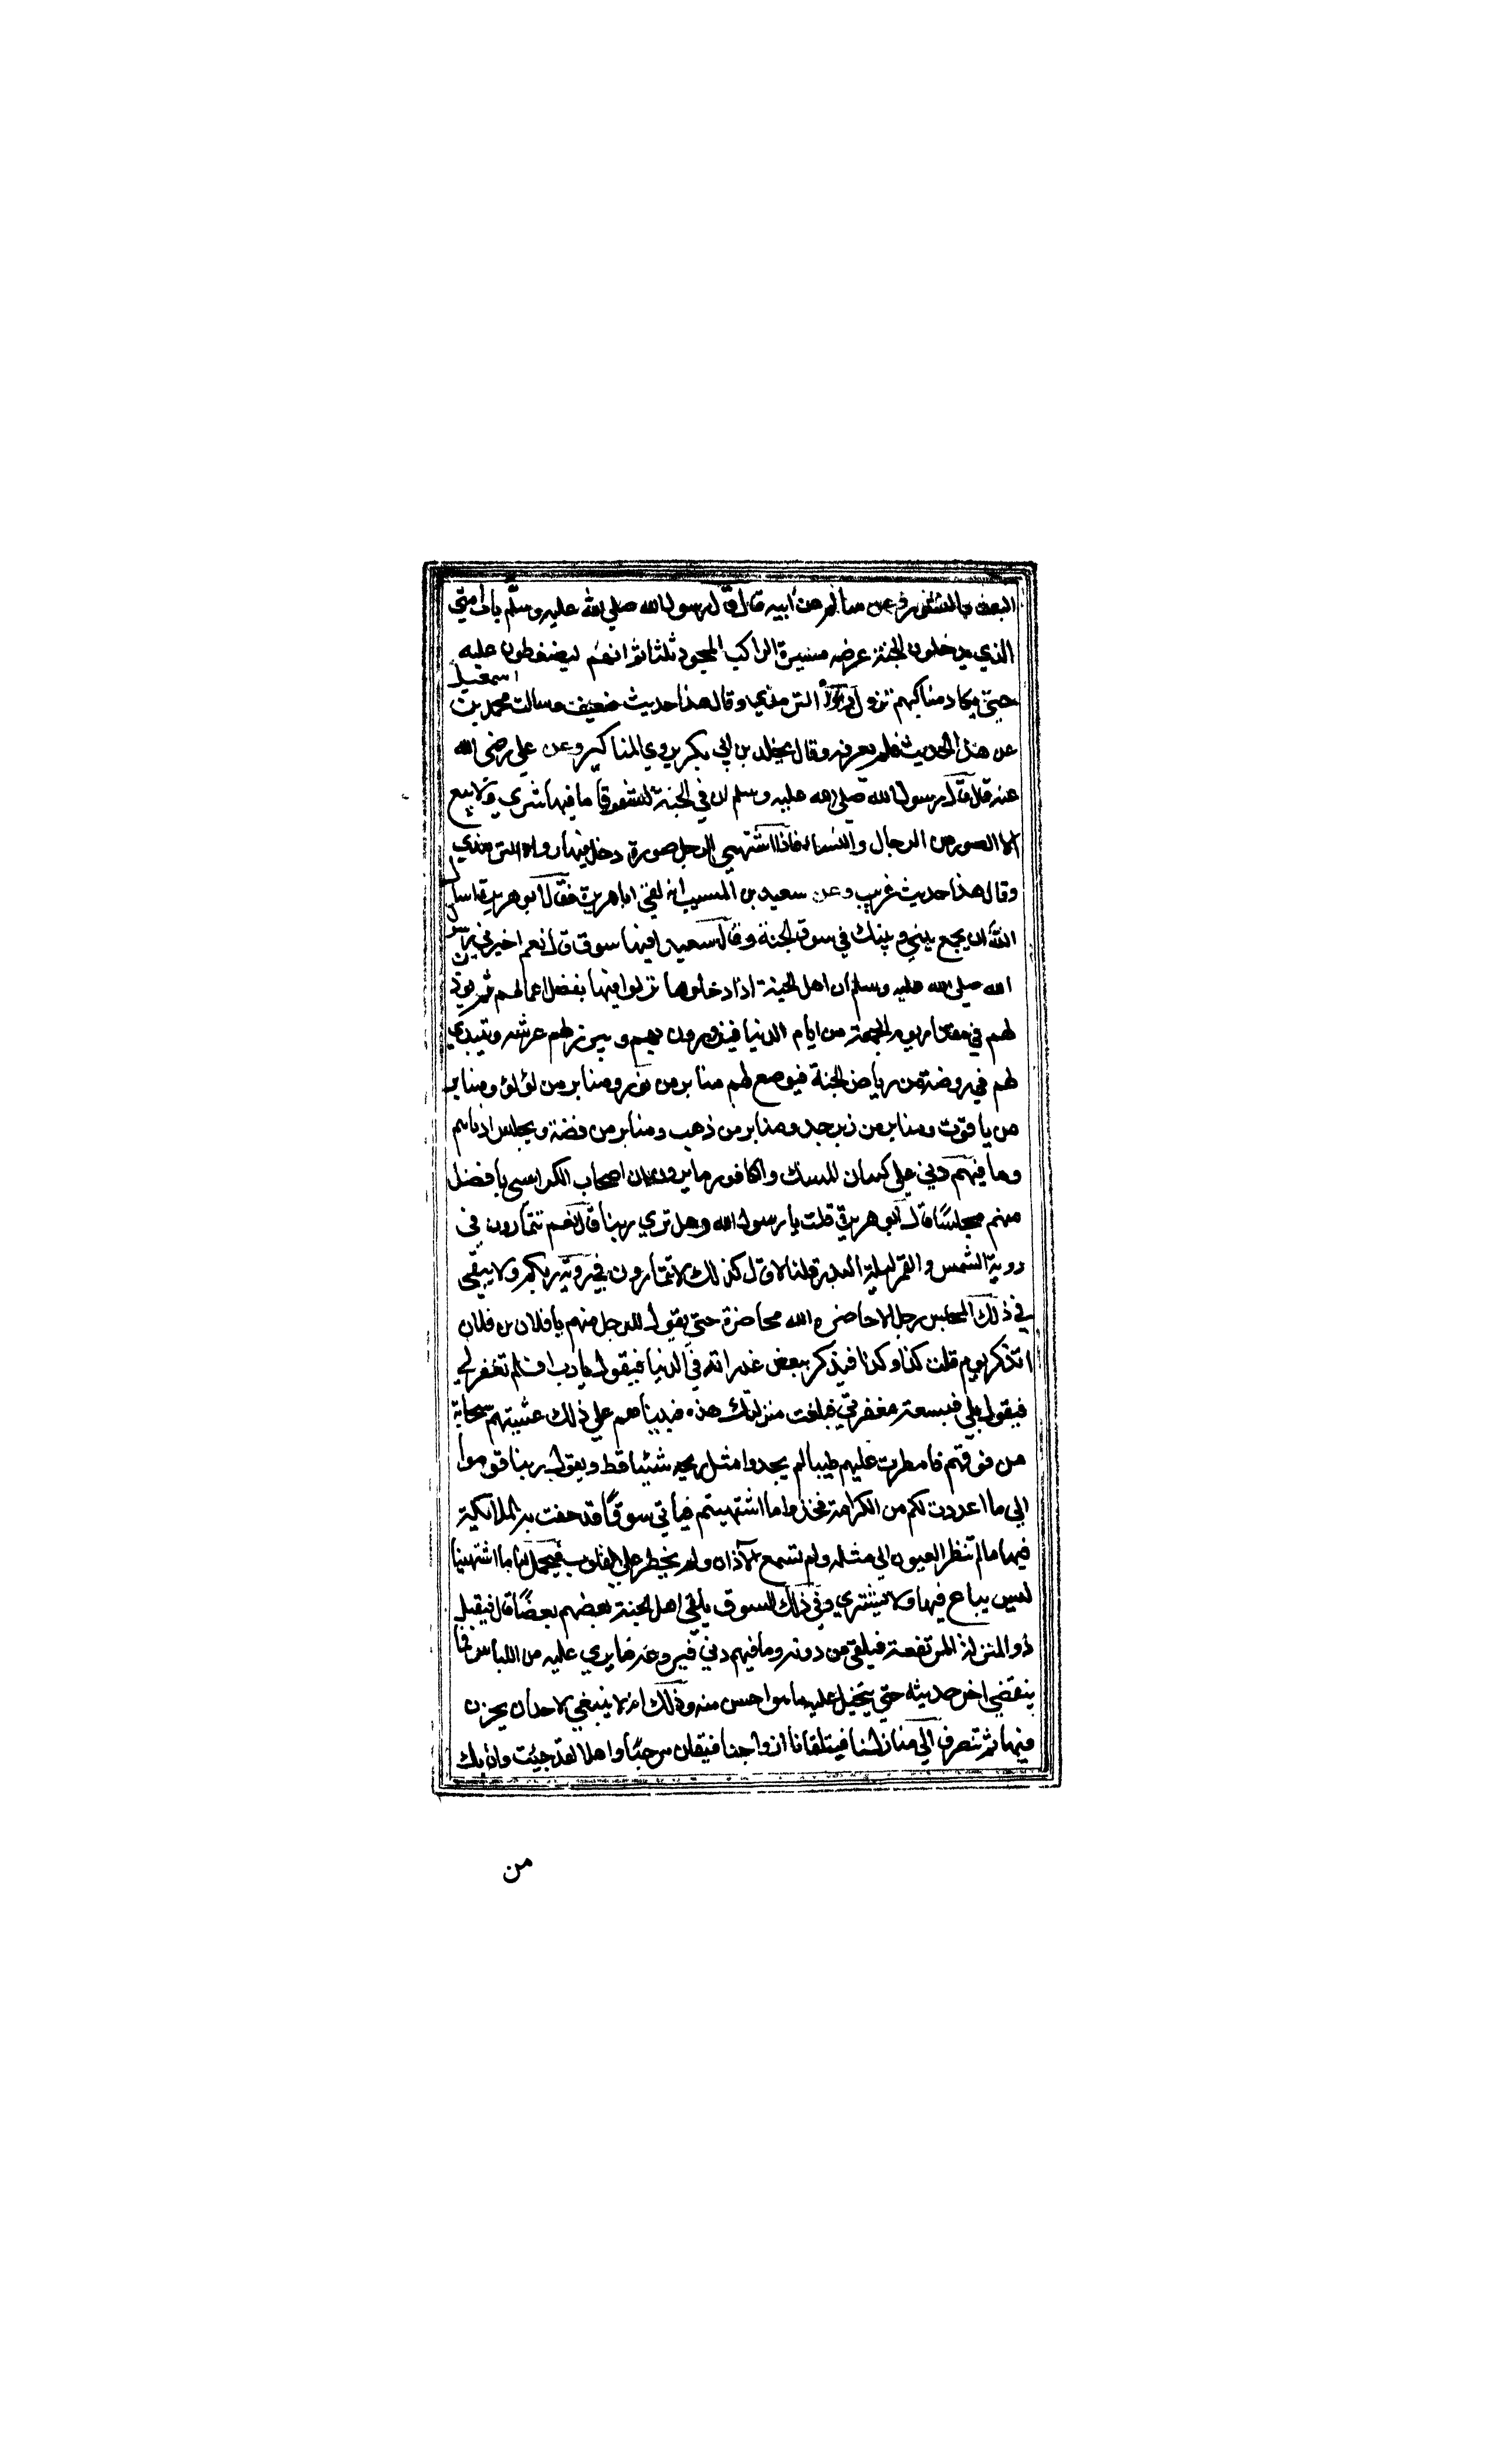 البعث والنشور وعن سالم عن أبيه قال قال رسول الله صلي الله عليه وسلم باب امتي
الذي يدخلون الجنة عرضه مسيرة الراكب المجود ثلثا ثم انهم ليضغطون عليه
حتي يكاد مناكبهم تزول رواه الترمذي وقال هذا حديث ضعيف وسالت محمد بن اسمعيل
عن هذا الحديث فلم يعرفه وقال يخلد بن ابي بكر يروي المناكير وعن علي رضي الله
عنه قال قال رسول الله صلي الله عليه وسلم ان في الجنة لسوقا ما فيها شري ولا بيع
الا الصور من الرجال والنساء فاذا اشتهي الرجل صورة دخل فيها رواه الترمذي
وقال هذا حديث غريب وعن سعيد بن المسيب انه لقي ابا هريرة فقال ابو هريرة اسأل
الله ان يجمع بيني وبينك في سوق الجنة وقال سعيد افيها سوق قال نعم اخبرني رسول
الله صلي الله عليه وسلم ان اهل الجنة اذا دخلوها نزلوا فيها بفضل اعمالهم ثم يوذن
لهم في مقدار يوم الجمعة من ايام الدنيا فيزورون ربهم ويبرز لهم عرشه ويتبدي
لهم في روضة من رياض الجنة فيوضع لهم منابر من نور ومنابر من لؤلؤ ومنابر
من ياقوت ومنابر من زبرجد ومنابر من ذهب ومنابر من فضة ويجلس ادناهم
وما فيهم دني علي كثبان المسك والكافور ما يرون ان اصحاب الكراسي بافضل
منهم مجلسًا قال ابو هريرة قلت يا رسول الله وهل نري ربنا قال نعم تتمارون في
روية الشمس والقمر ليلة البدر قلنا لا قال كذلك لا تتمارون في روية ربكم ولا يبقي
في ذلك المجلس رجل الا حاضره الله محاضرة حتي يقول للرجل منهم يا فلان بن فلان
اتذكر يوم قلت كذا وكذا فيذكر ببعض غدراته في الدنيا فيقول يا رب افلم تغفر لي
فيقول بلي فبسعة مغفرتي بلغت منزلتك هذه فبينا هم علي ذلك غشيتهم سحابة
من فوقهم فامطرت عليهم طيبا لم يجدوا مثل ريحه شيئا قط ويقول ربنا قوموا
الي ما اعددت لكم من الكرامة فخذوا ما اشتهيتم فياتي سوقًا قد حفت به الملائكة
فيها ما لم تنظر العيون الي مثله ولم تسمع الآذان ولم يخطر علي القلوب فيحمل لنا ما اشتهينا
ليس يباع فيها ولا يشتري وفي ذلك السوق يلقي اهل الجنة بعضهم بعضًا قال فيقبل
ذو المنزلة المرتفعة فيلقي من دونه وما فيهم دني فيروعه ما يري عليه من اللباس فما
ينقضي اخر حديثه حتي يتخيل عليه ما هو احسن منه وذلك انه لا ينبغي لاحد ان يحزن
فيها ثم نتصرف الي منازلنا فيتلقانا ازواجنا فيقلن مرحبًا واهلا لقد جئت وان بك
من